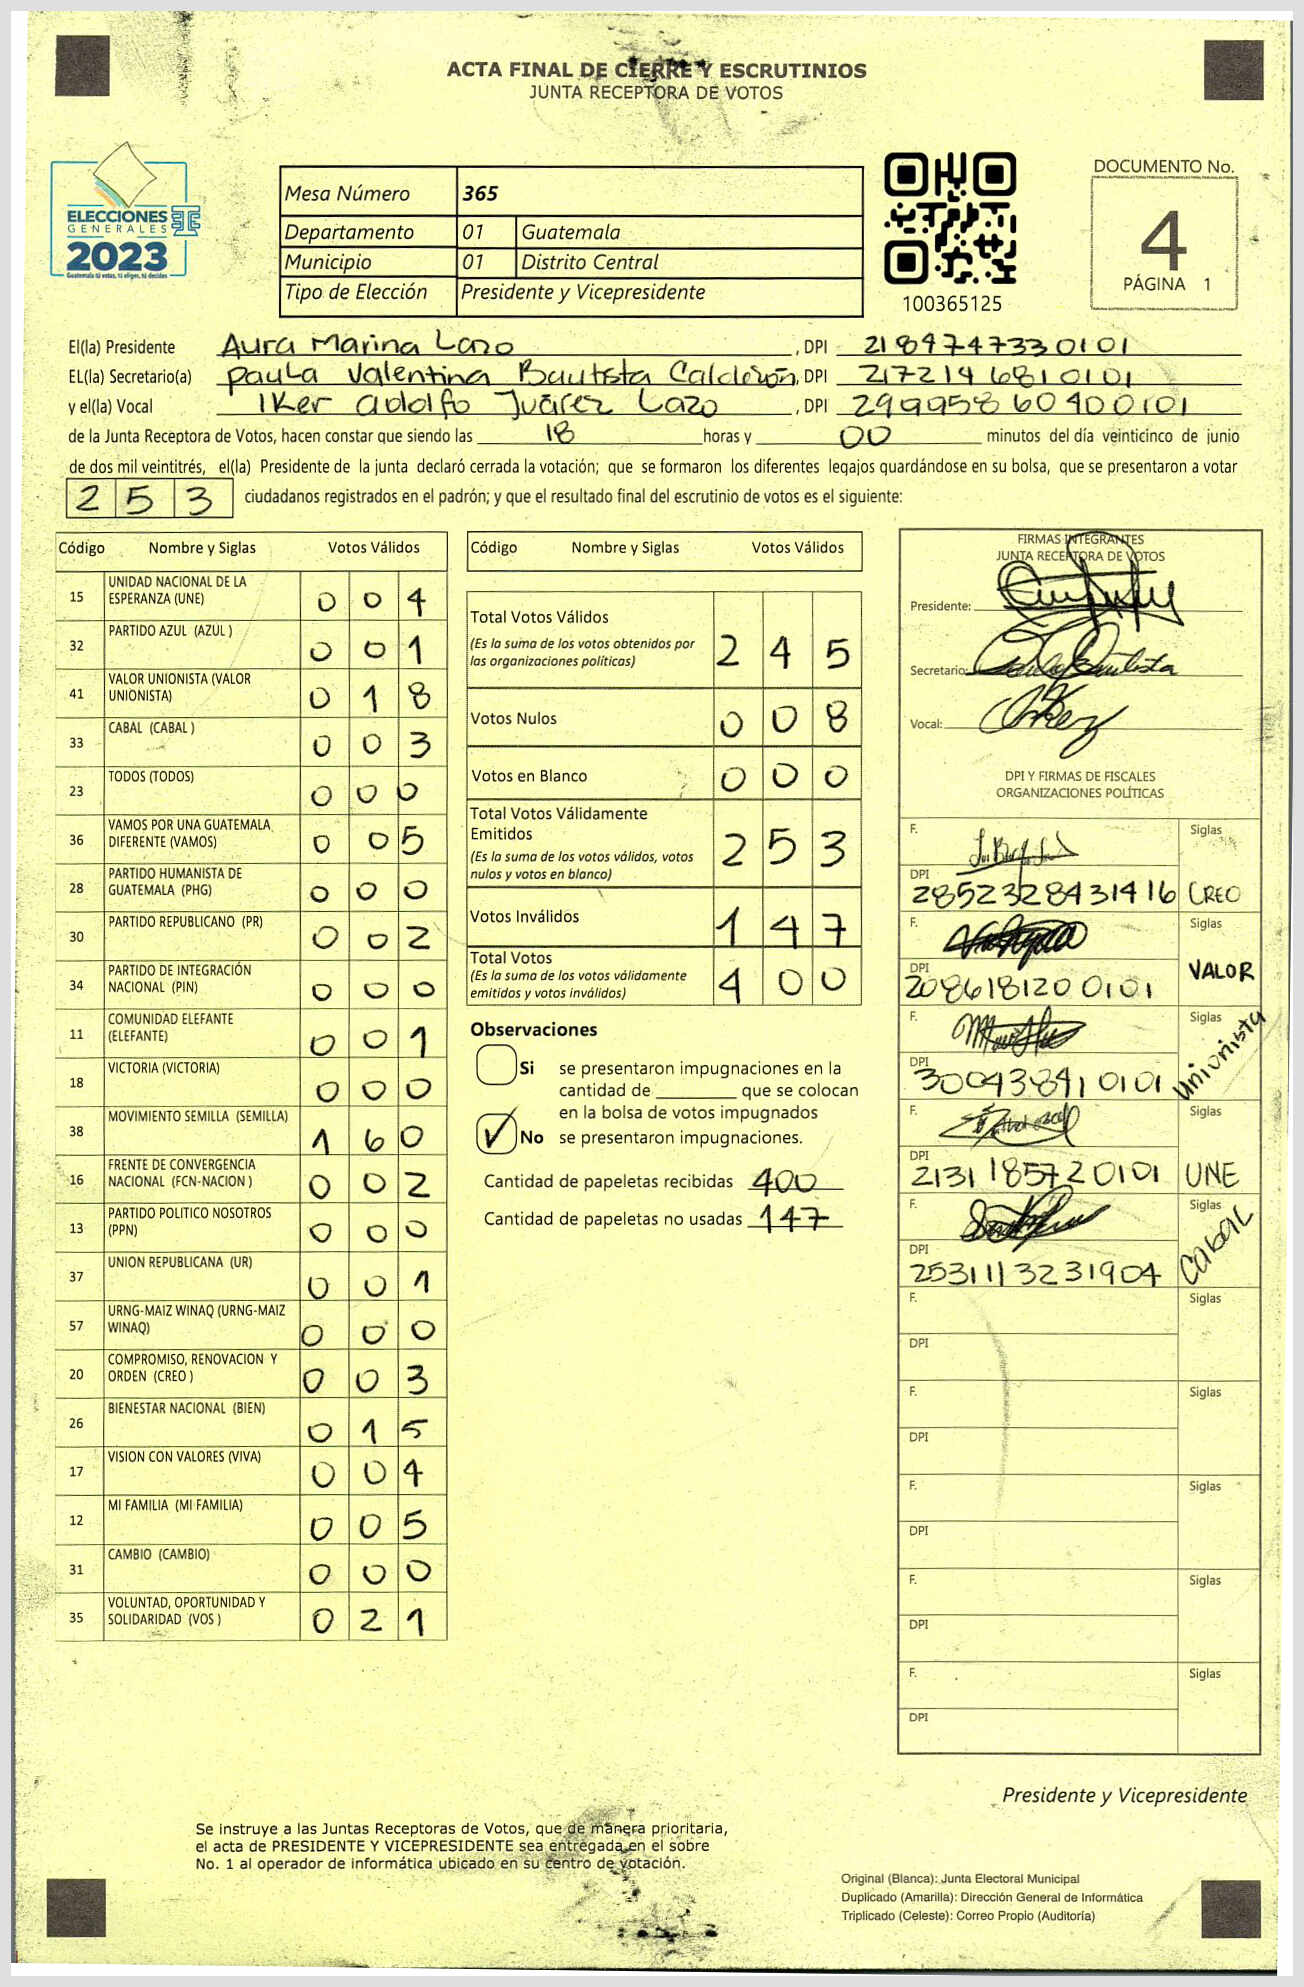 ACTA FINAL DE CIERRE Y ESCRUTINIOS
JUNTA RECEPTORA DE VOTOS
ELECCIONES
GENERALES
2023
Guatemala tú votas, tú eliges, tú decides
Mesa Número 365
Departamento 01 Guatemala
Municipio 01 Distrito Central
Tipo de Elección Presidente y Vicepresidente
100365125
DOCUMENTO No.
4
PÁGINA 1
El(la) Presidente Aura Marina Lazo, DPI 2189747330101
EL(la) Secretario(a) Paula Valentina Bautista Calderón, DPI 2172146810101
y el(la) Vocal Iker adolfo Juárez Lazo, DPI 2999586040​0101
de la Junta Receptora de Votos, hacen constar que siendo las 18 horas y 00 minutos del día veinticinco de junio
de dos mil veintitrés, el(la) Presidente de la junta declaró cerrada la votación; que se formaron los diferentes legajos guardándose en su bolsa, que se presentaron a votar
253 ciudadanos registrados en el padrón; y que el resultado final del escrutinio de votos es el siguiente:
Código Nombre y Siglas Votos Válidos
15 UNIDAD NACIONAL DE LA ESPERANZA (UNE) 0 0 4
32 PARTIDO AZUL (AZUL ) 0 0 1
41 VALOR UNIONISTA (VALOR UNIONISTA) 0 1 8
33 CABAL (CABAL ) 0 0 3
23 TODOS (TODOS) 0 0 0
36 VAMOS POR UNA GUATEMALA DIFERENTE (VAMOS) 0 0 5
28 PARTIDO HUMANISTA DE GUATEMALA (PHG) 0 0 0
30 PARTIDO REPUBLICANO (PR) 0 0 2
34 PARTIDO DE INTEGRACIÓN NACIONAL (PIN) 0 0 0
11 COMUNIDAD ELEFANTE (ELEFANTE) 0 0 1
18 VICTORIA (VICTORIA) 0 0 0
38 MOVIMIENTO SEMILLA (SEMILLA) 1 6 0
16 FRENTE DE CONVERGENCIA NACIONAL (FCN-NACION ) 0 0 2
13 PARTIDO POLITICO NOSOTROS (PPN) 0 0 0
37 UNION REPUBLICANA (UR) 0 0 1
57 URNG-MAIZ WINAQ (URNG-MAIZ WINAQ) 0 0 0
20 COMPROMISO, RENOVACION Y ORDEN (CREO ) 0 0 3
26 BIENESTAR NACIONAL (BIEN) 0 1 5
17 VISION CON VALORES (VIVA) 0 0 4
12 MI FAMILIA (MI FAMILIA) 0 0 5
31 CAMBIO (CAMBIO) 0 0 0
35 VOLUNTAD, OPORTUNIDAD Y SOLIDARIDAD (VOS ) 0 2 1
Código Nombre y Siglas Votos Válidos
Total Votos Válidos
(Es la suma de los votos obtenidos por
las organizaciones políticas) 2 4 5
Votos Nulos 0 0 8
Votos en Blanco 0 0 0
Total Votos Válidamente
Emitidos
(Es la suma de los votos válidos, votos
nulos y votos en blanco) 2 5 3
Votos Inválidos 1 4 7
Total Votos
(Es la suma de los votos válidamente
emitidos y votos inválidos) 4 0 0
Observaciones
Si se presentaron impugnaciones en la
cantidad de ________ que se colocan
en la bolsa de votos impugnados
No se presentaron impugnaciones.
Cantidad de papeletas recibidas 400
Cantidad de papeletas no usadas 147
FIRMAS INTEGRANTES
JUNTA RECEPTORA DE VOTOS
Presidente:
Secretario:
Vocal:
DPI Y FIRMAS DE FISCALES
ORGANIZACIONES POLÍTICAS
F. Siglas
DPI 2852328431416 CREO
F. Siglas
DPI 2086181200101 VALOR
F. Siglas
DPI 3004389410101 Unionista
F. Siglas
DPI 2131185720101 UNE
F. Siglas
DPI 2531113231904 Cabal
F. Siglas
DPI
F. Siglas
DPI
F. Siglas
DPI
F. Siglas
DPI
F. Siglas
DPI
Presidente y Vicepresidente
Se instruye a las Juntas Receptoras de Votos, que de manera prioritaria,
el acta de PRESIDENTE Y VICEPRESIDENTE sea entregada en el sobre
No. 1 al operador de informática ubicado en su centro de votación.
Original (Blanca): Junta Electoral Municipal
Duplicado (Amarilla): Dirección General de Informática
Triplicado (Celeste): Correo Propio (Auditoría)